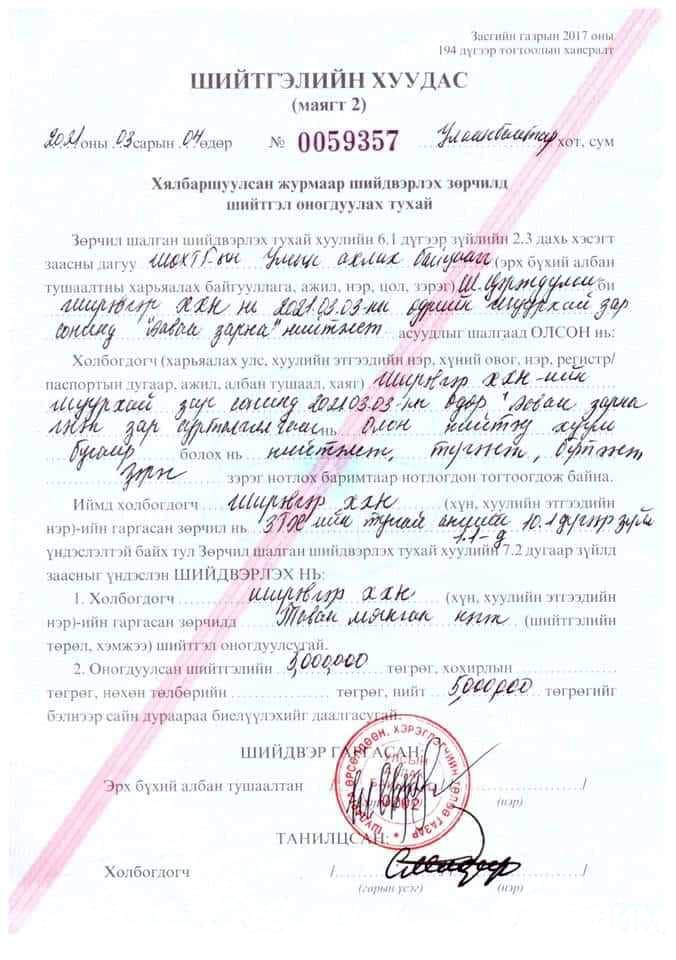 Засгийн газрын 2017 оны
194 дүгээр тогтоолын хавсралт
ШИЙТГЭЛИЙН ХУУДАС
(маягт 2)
2021 оны 03 сарын 04 өдөр № 0059357 Улаанбаатар хот, сум
Хялбаршуулсан журмаар шийдвэрлэх зөрчилд
шийтгэл оногдуулах тухай
Зөрчил шалган шийдвэрлэх тухай хуулийн 6.1 дүгээр зүйлийн 2.3 дахь хэсэгт
заасны дагуу Улсын ахлах байцаагч (эрх бүхий албан
тушаалтны харьяалах байгууллага, ажил, нэр, цол, зэрэг) би
ХХК нь 2021.03.03-ны өдрийн шуурхай зар
сонинд зарна" нийтлэх асуудлыг шалгаад ОЛСОН нь:
Холбогдогч (харьяалах улс, хуулийн этгээдийн нэр, хүний овог, нэр, регистр/
паспортын дугаар, ажил, албан тушаал, хаяг) ХХК-ийн
шуурхай зар сонинд 2021.03.03-ны өдөр зарна
гэсэн зар сурталчилгааг нь олон нийтэд хууль
бусаар болох нь нийтлэх, түгээх,
зэрэг зэрэг нотлох баримтаар нотлогдон тогтоогдож байна.
Иймд холбогдогч ХХК (хүн, хуулийн этгээдийн
нэр)-ийн гаргасан зөрчил нь ЗТХ-ийн тусгай ангийн 10.1 дүгээр зүйл
1.1-д
үндэслэлтэй байх тул Зөрчил шалган шийдвэрлэх тухай хуулийн 7.2 дугаар зүйлд
заасныг үндэслэн ШИЙДВЭРЛЭХ НЬ:
1. Холбогдогч ХХК (хүн, хуулийн этгээдийн
нэр)-ийн гаргасан зөрчилд Таван мянган нэгж (шийтгэлийн
төрөл, хэмжээ) шийтгэл оногдуулсугай.
2. Оногдуулсан шийтгэлийн 5,000,000 төгрөг, хохирлын
төгрөг, нөхөн төлбөрийн төгрөг, нийт 5,000,000 төгрөгийг
бэлнээр сайн дураараа биелүүлэхийг даалгасугай.
ШИЙДВЭР ГАРГАСАН:
Эрх бүхий албан тушаалтан / / (нэр)
ТАНИЛЦСАН:
Холбогдогч / /
(гарын үсэг) (нэр)